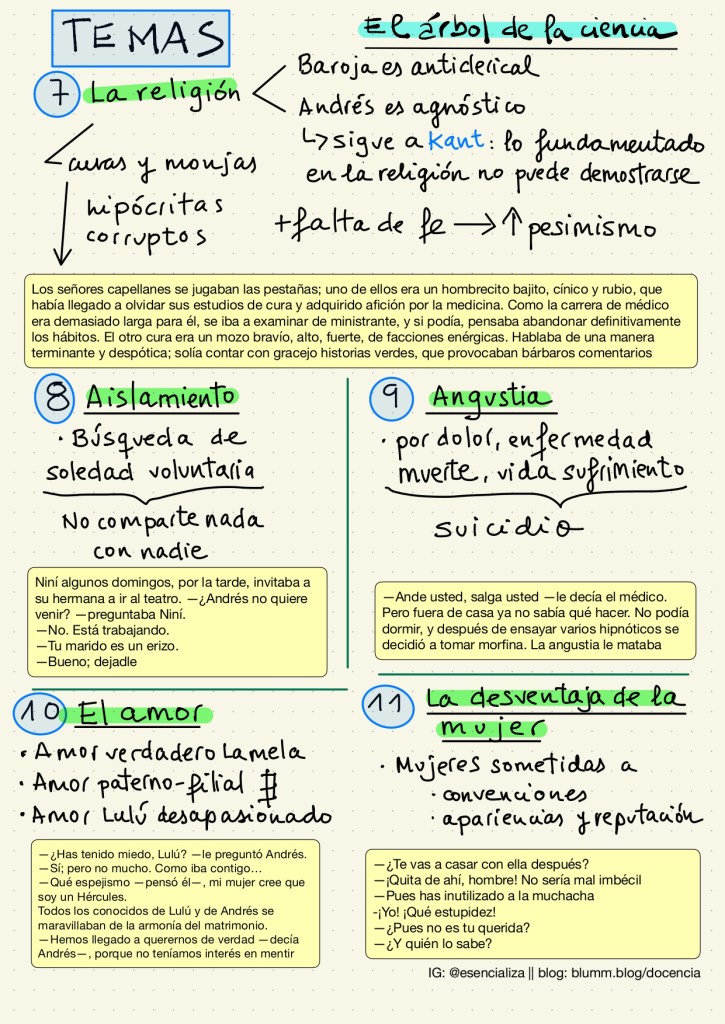 TEMAS
El árbol de la ciencia
7 La religión
Baroja es anticlerical
Andrés es agnóstico
↳ sigue a Kant: lo fundamentado
en la religión no puede demostrarse
curas y monjas
hipócritas
corruptos
+ falta de fe → ↑ pesimismo
Los señores capellanes se jugaban las pestañas; uno de ellos era un hombrecito bajito, cínico y rubio, que
había llegado a olvidar sus estudios de cura y adquirido afición por la medicina. Como la carrera de médico
era demasiado larga para él, se iba a examinar de ministrante, y si podía, pensaba abandonar definitivamente
los hábitos. El otro cura era un mozo bravío, alto, fuerte, de facciones enérgicas. Hablaba de una manera
terminante y despótica; solía contar con gracejo historias verdes, que provocaban bárbaros comentarios
8 Aislamiento
· Búsqueda de
soledad voluntaria
No comparte nada
con nadie
Niní algunos domingos, por la tarde, invitaba a
su hermana a ir al teatro. —¿Andrés no quiere
venir? —preguntaba Niní.
—No. Está trabajando.
—Tu marido es un erizo.
—Bueno; dejadle
9 Angustia
· por dolor, enfermedad
muerte, vida sufrimiento
suicidio
—Ande usted, salga usted —le decía el médico.
Pero fuera de casa ya no sabía qué hacer. No podía
dormir, y después de ensayar varios hipnóticos se
decidió a tomar morfina. La angustia le mataba
10 El amor
· Amor verdadero Lamela
· Amor paterno-filial ∄
· Amor Lulú desapasionado
—¿Has tenido miedo, Lulú? —le preguntó Andrés.
—Sí; pero no mucho. Como iba contigo…
—Qué espejismo —pensó él—, mi mujer cree que
soy un Hércules.
Todos los conocidos de Lulú y de Andrés se
maravillaban de la armonía del matrimonio.
—Hemos llegado a querernos de verdad —decía
Andrés—, porque no teníamos interés en mentir
11 La desventaja de la
mujer
· Mujeres sometidas a
· convenciones
· apariencias y reputación
—¿Te vas a casar con ella después?
—¡Quita de ahí, hombre! No sería mal imbécil
—Pues has inutilizado a la muchacha
-¡Yo! ¡Qué estupidez!
—¿Pues no es tu querida?
—¿Y quién lo sabe?
IG: @esencializa || blog: blumm.blog/docencia